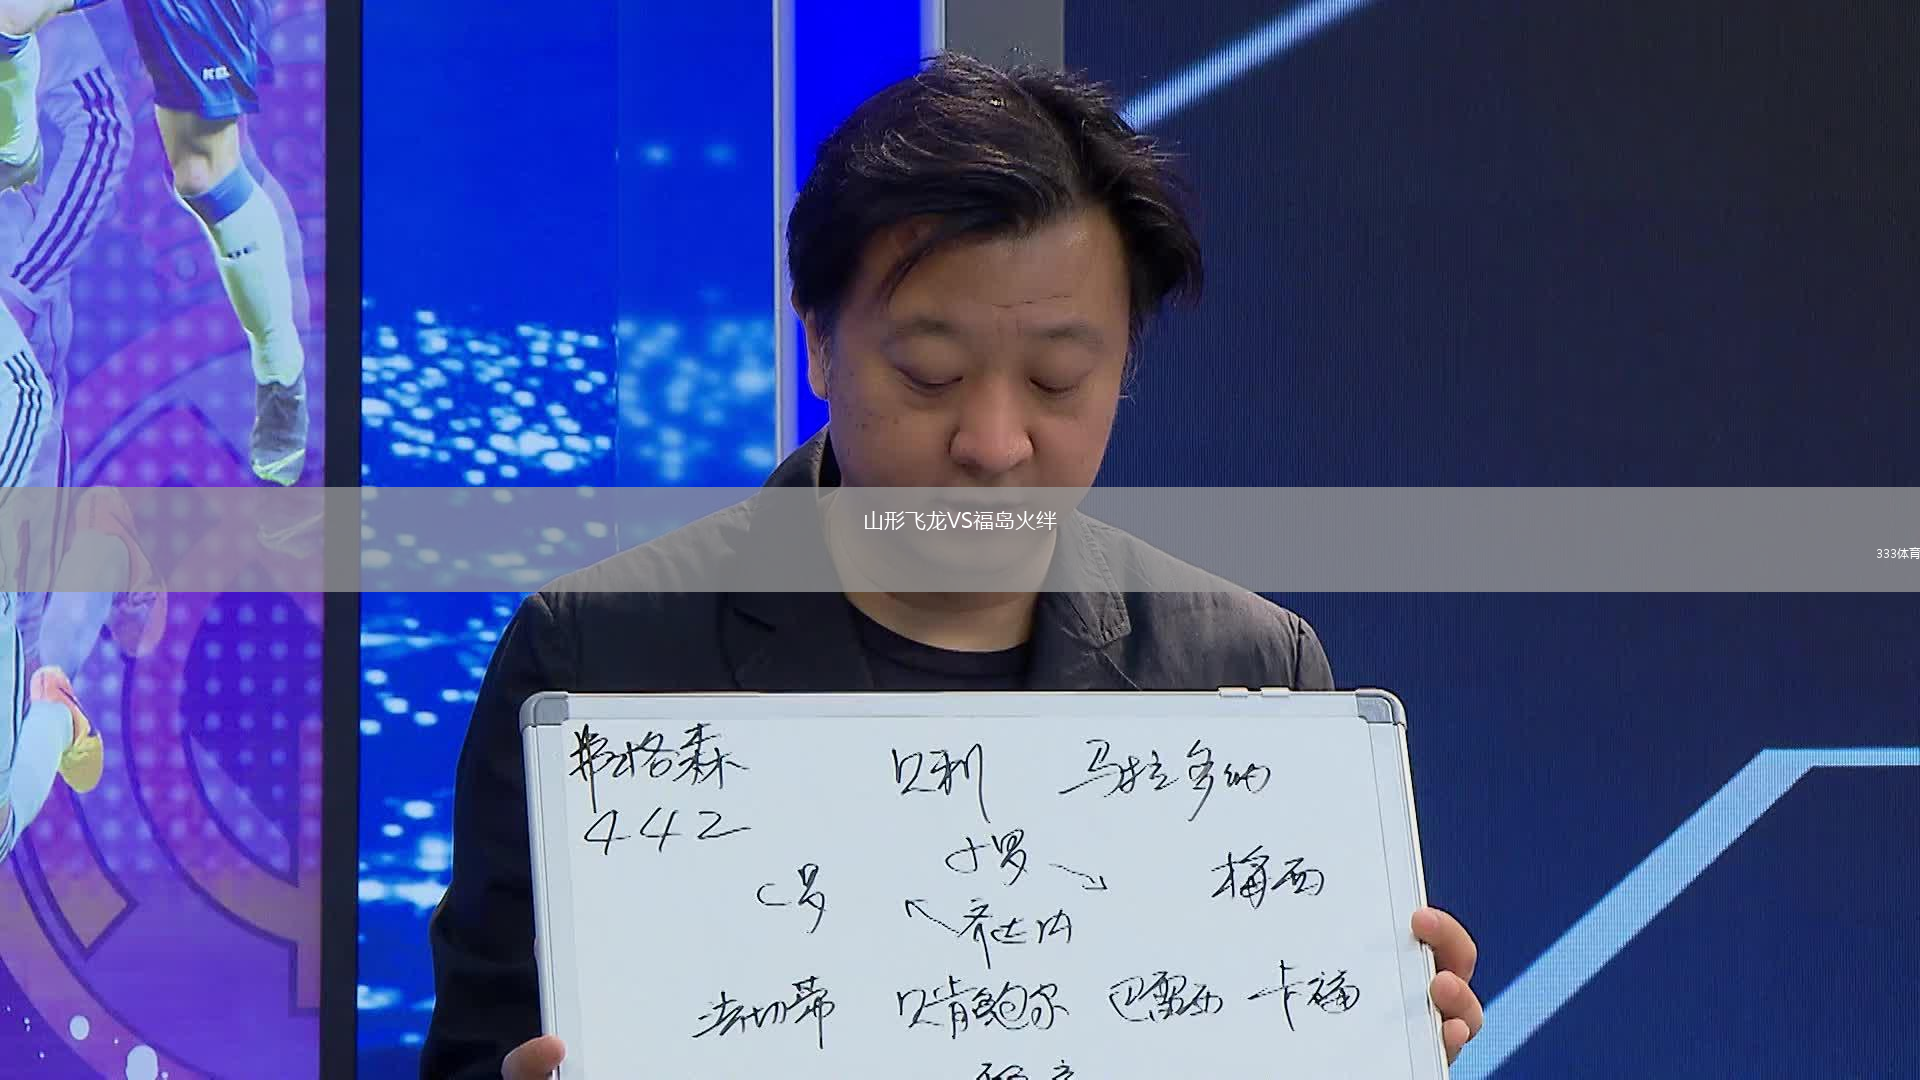 山形飞龙VS福岛火绊
333体育
弗格森 贝利 马拉多纳
442
小罗
C罗 梅西
齐达内
法切蒂 贝肯鲍尔 巴雷西 卡福